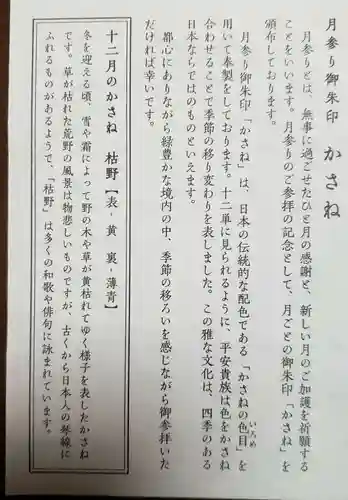 月参り御朱印 かさね
月参りとは、無事に過ごせたひと月の感謝と、新しい月のご加護を祈願する
ことをいいます。月参りのご参拝の記念として、月ごとの御朱印「かさね」を
頒布しております。
月参り御朱印「かさね」は、日本の伝統的な配色である「かさねの色目」を
いろめ
用いて奉製をしております。十二単に見られるように、平安貴族は色をかさね
合わせることで季節の移り変わりを表しました。この雅な文化は、四季のある
日本ならではのものといえます。
都心にありながら緑豊かな境内の中、季節の移ろいを感じながら御参拝いた
だければ幸いです。
十二月のかさね 枯野【表-黄 裏-薄青】
冬を迎える頃、雪や霜によって野の木や草が黄枯れてゆく様子を表したかさね
です。草が枯れた荒野の風景は物悲しいものですが、古くから日本人の琴線に
ふれるものがあるようで、「枯野」は多くの和歌や俳句に詠まれています。